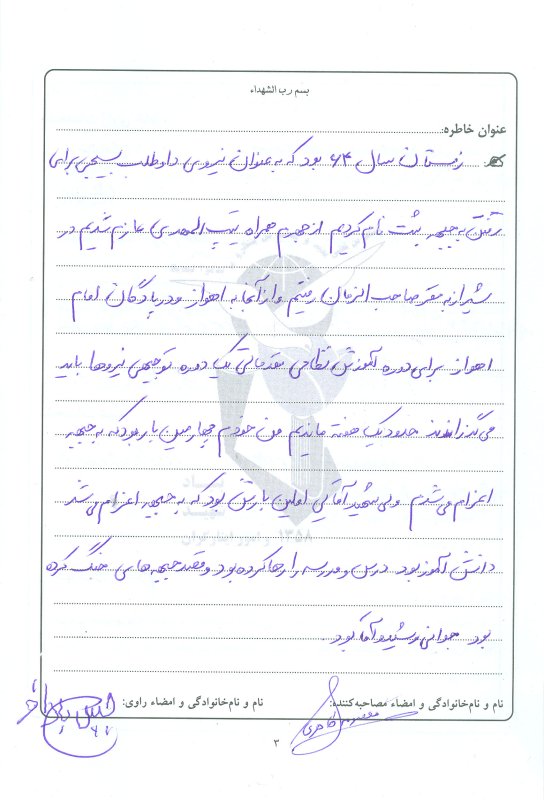 بسم رب الشهداء
عنوان خاطره:
زمستان سال ۶۴ بود که به عنوان نیروی داوطلب بسیجی برای
رفتن به جبهه ثبت نام کردیم از جهرم همراه تیپ المهدی عازم شدیم در
شیراز به مقر صاحب الزمان رفتیم و از آنجا به اهواز و در پادگان امام
اهواز برای دوره آموزش نظامی مقدماتی یک دوره توجیهی نیروها باید
می گذراندند حدود یک هفته ماندیم من خودم چهارمین بار بود که به جبهه
اعزام می شدم ولی شهید آقائی اولین بارش بود که به جبهه اعزام می شد
دانش آموز بود درس و مدرسه را رها کرده بود و قصد جبهه های جنگ کرده
بود جوانی رشید و آقا بود.
نام و نام‌خانوادگی و امضاء مصاحبه‌کننده:
نام و نام‌خانوادگی و امضاء راوی:
۳
۱۳۵۸